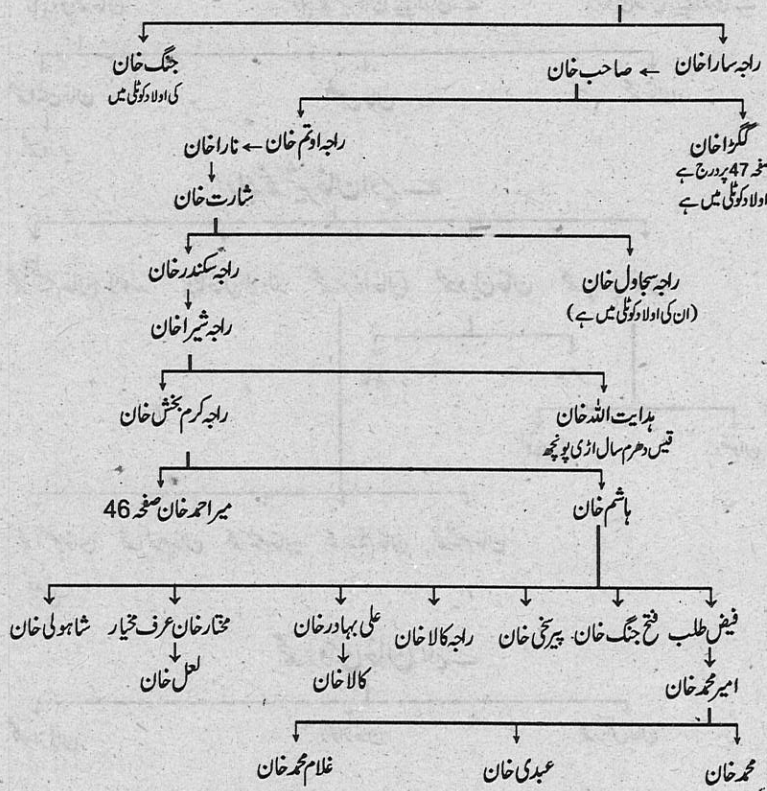 راجہ سارا خان ← صاحب خان
جنگ خان
کی اولاد کوٹلی میں
گکڑا خان
صفحہ 47 پر درج ہے
اولاد کوٹلی میں ہے
راجہ اوتم خان ← نارا خان
شارت خان
راجہ سجاول خان
(ان کی اولاد کوٹلی میں ہے)
راجہ سکندر خان
راجہ شیرا خان
ہدایت اللہ خان
قیس دھرم سال اڑی پونچھ
راجہ کرم بخش خان
ہاشم خان
میر احمد خان صفحہ 46
فیض طلب
فتح جنگ خان
پیر بخی خان
راجہ کالا خان
علی بہادر خان
مختار خان عرف مخیار
شاہولی خان
امیر محمد خان
کالا خان
لعل خان
محمد خان
عبدی خان
غلام محمد خان